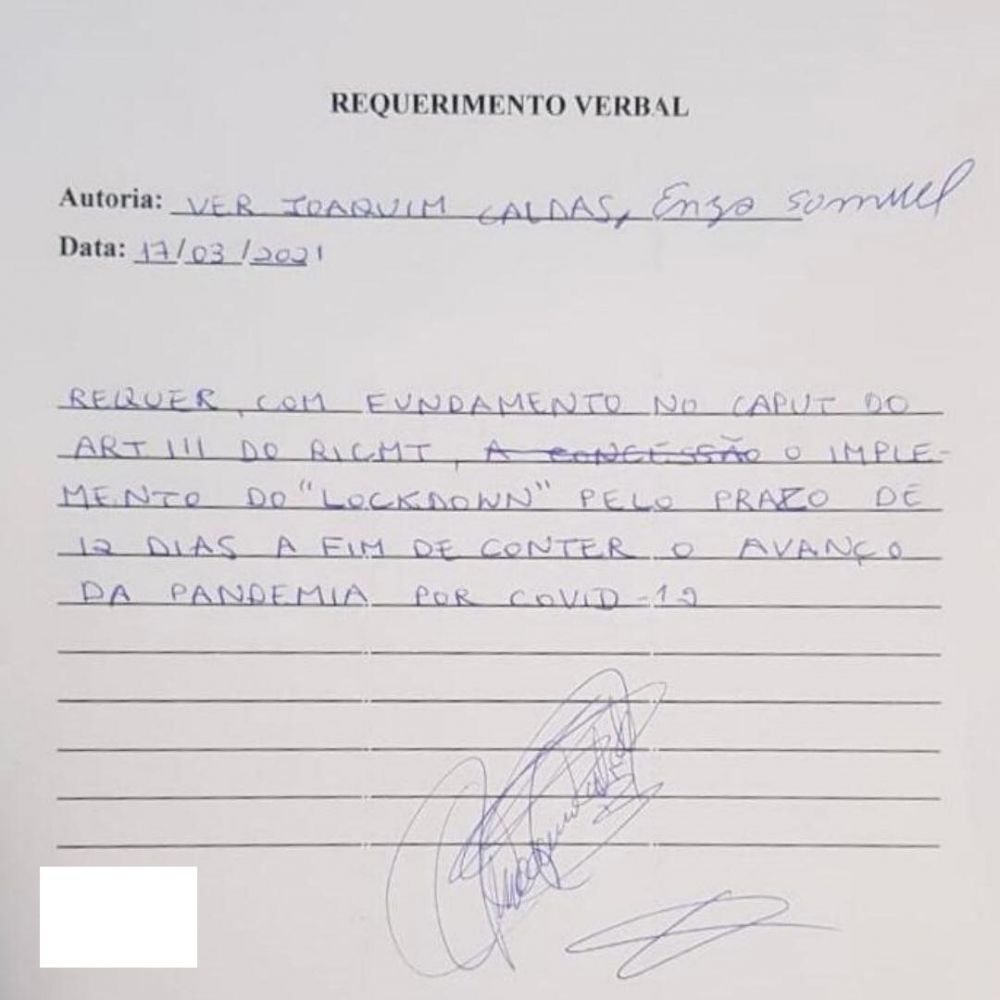 REQUERIMENTO VERBAL
Autoria: VER JOAQUIM CALDAS, Enzo Samuel
Data: 17/03/2021
REQUER, COM FUNDAMENTO NO CAPUT DO
ART 111 DO RICMT, A CONCESSÃO O IMPLE-
MENTO DO "LOCKDOWN" PELO PRAZO DE
12 DIAS A FIM DE CONTER O AVANÇO
DA PANDEMIA POR COVID-19